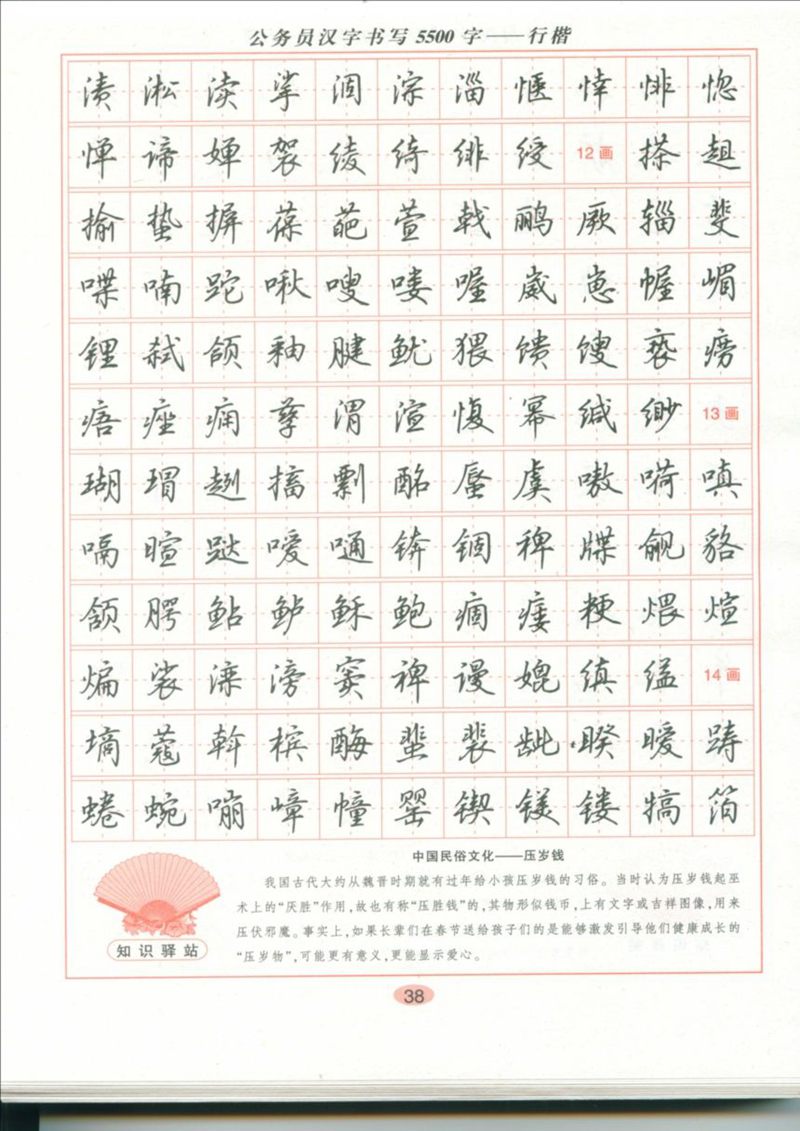 公务员汉字书写5500字——行楷
渍淞渎挲涸淙淄惬悻悱惚
惮谛婵袈绫绮绯绶12画搽趄
揄蛰摒葆葩萱戟鹂厥辎斐
喋喃跎啾嗖喽喔崴崽幄嵋
锂弑颌釉腱鱿猥馈馊亵痨
痦痤痫孳渭渲愎幂缄缈13画
瑚瑁趔搞剽酩蜃虞嗷嗬嗔
嗝暄跶嗳嗵锛锢稗牒觎貉
颔腭鲇鲈稣鲍痼粳煨煊
煸裟溧滂窦裨谩媲缜缢14画
墒蔻斡槟酶蜚裴龇睽暧踌
蜷蜿嘣嶂幢罂锲镁镂犒箔
中国民俗文化——压岁钱
我国古代大约从魏晋时期就有过年给小孩压岁钱的习俗。当时认为压岁钱起巫
术上的“厌胜”作用,故也有称“压胜钱”的,其物形似钱币,上有文字或吉祥图像,用来
压伏邪魔。事实上,如果长辈们在春节送给孩子们的是能够激发引导他们健康成长的
“压岁物”,可能更有意义,更能显示爱心。
知识驿站
38